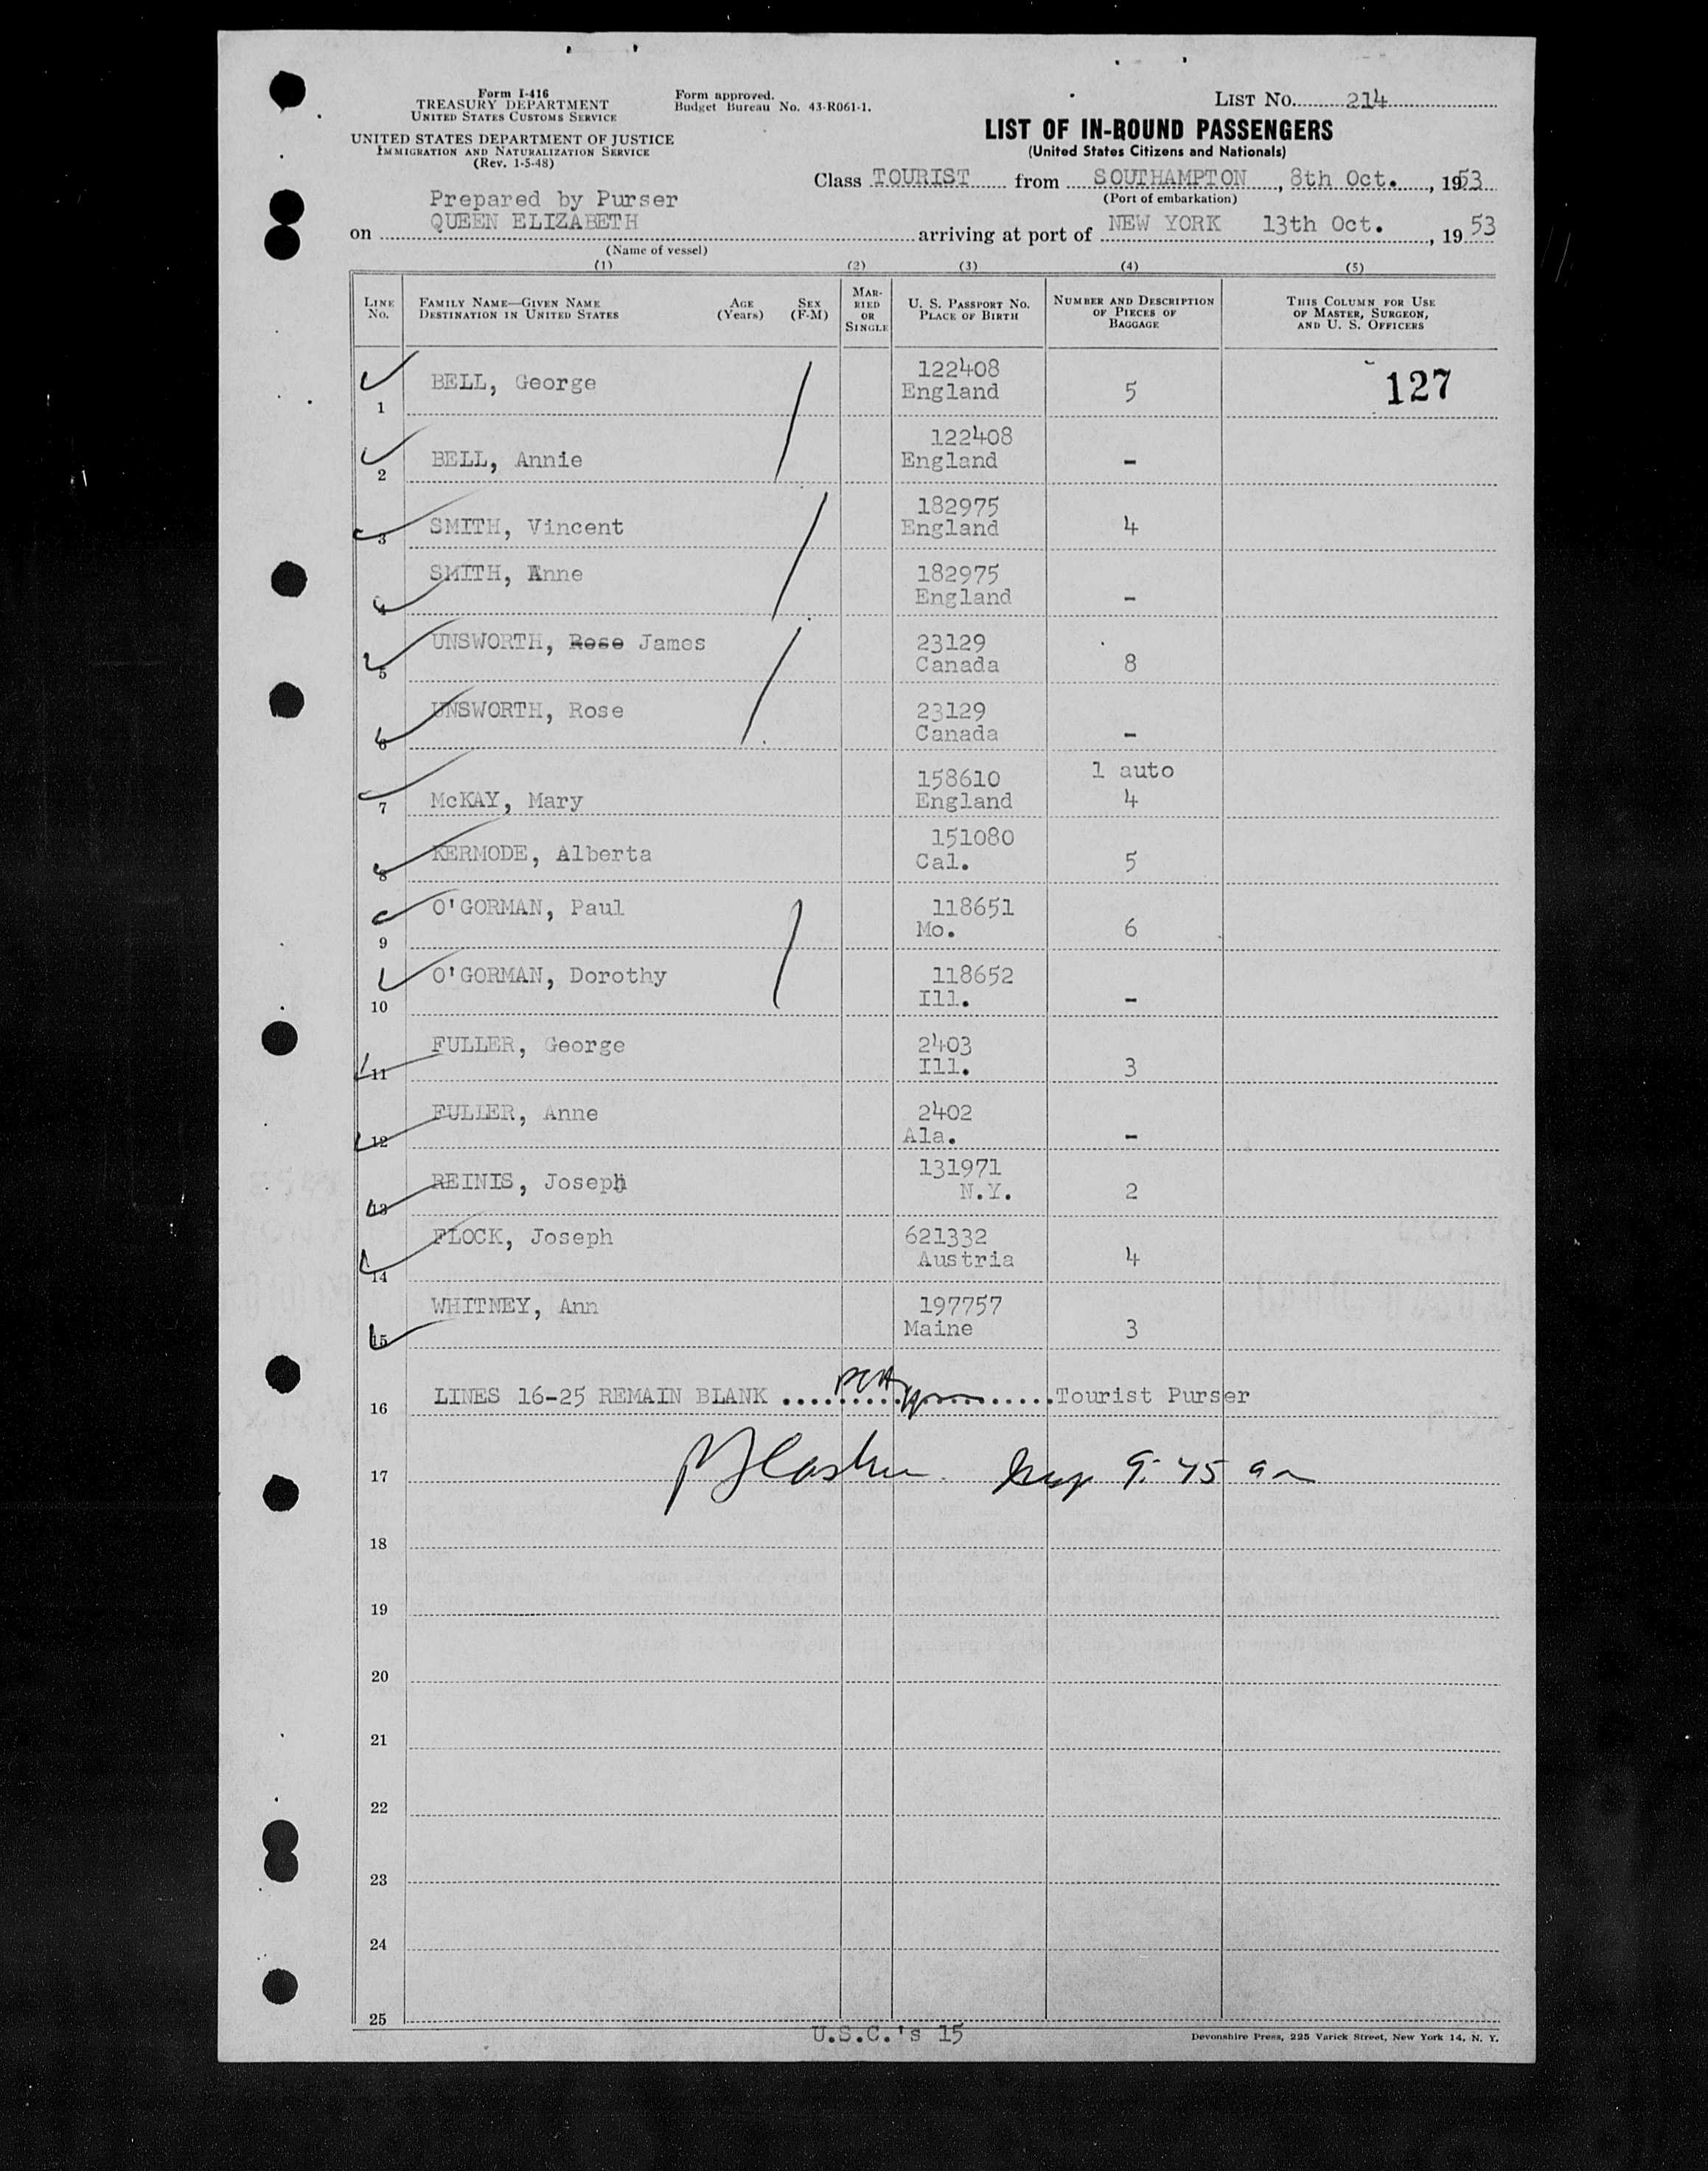 Form I-416
TREASURY DEPARTMENT
UNITED STATES CUSTOMS SERVICE
UNITED STATES DEPARTMENT OF JUSTICE
IMMIGRATION AND NATURALIZATION SERVICE
(Rev. 1-5-48)
Form approved.
Budget Bureau No. 43-R061-1.
LIST NO. 214
LIST OF IN-BOUND PASSENGERS
(United States Citizens and Nationals)
Class TOURIST from SOUTHAMPTON, 8th Oct., 1953
(Port of embarkation)
Prepared by Purser
on QUEEN ELIZABETH arriving at port of NEW YORK 13th Oct., 1953
(Name of vessel)
(1) (2) (3) (4) (5)
LINE NO. FAMILY NAME—GIVEN NAME DESTINATION IN UNITED STATES AGE (Years) SEX (F-M) MARRIED OR SINGLE U. S. PASSPORT NO. PLACE OF BIRTH NUMBER AND DESCRIPTION OF PIECES OF BAGGAGE THIS COLUMN FOR USE OF MASTER, SURGEON, AND U. S. OFFICERS
1 BELL, George 122408 England 5 127
2 BELL, Annie 122408 England -
3 SMITH, Vincent 182975 England 4
4 SMITH, Anne 182975 England -
5 UNSWORTH, Rose James 23129 Canada 8
6 UNSWORTH, Rose 23129 Canada -
7 McKAY, Mary 158610 England 1 auto 4
8 KERMODE, Alberta 151080 Cal. 5
9 O'GORMAN, Paul 118651 Mo. 6
10 O'GORMAN, Dorothy 118652 Ill. -
11 FULLER, George 2403 Ill. 3
12 FULLER, Anne 2402 Ala. -
13 REINIS, Joseph 131971 N.Y. 2
14 FLOCK, Joseph 621332 Austria 4
15 WHITNEY, Ann 197757 Maine 3
16 LINES 16-25 REMAIN BLANK Tourist Purser
17 9:45 am
18
19
20
21
22
23
24
25
U.S.C.'s 15
Devonshire Press, 225 Varick Street, New York 14, N. Y.